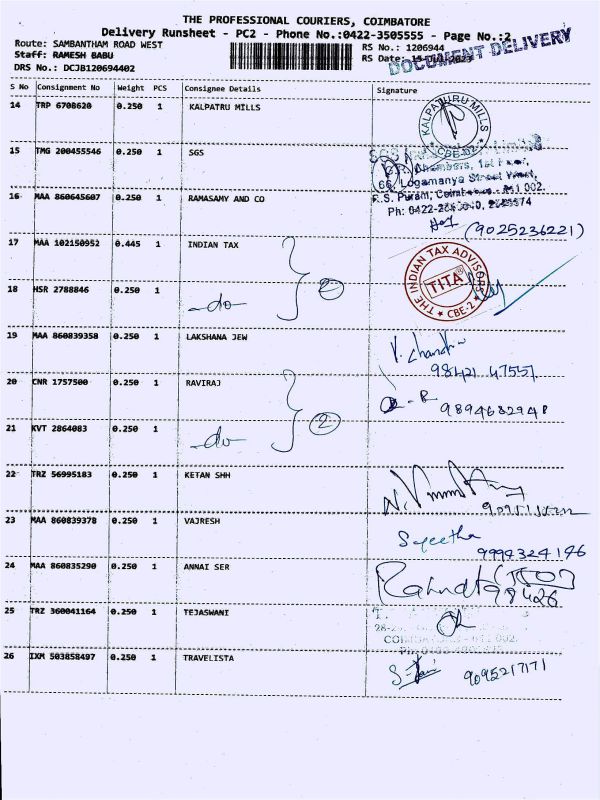 THE PROFESSIONAL COURIERS, COIMBATORE
Delivery Runsheet - PC2 - Phone No.:0422-3505555 - Page No.:2
Route: SAMBANTHAM ROAD WEST RS No.: 1206944
Staff: RAMESH BABU RS Date:
DOCUMENT DELIVERY
DRS No.: DCJB120694402
S No Consignment No Weight PCS Consignee Details Signature
14 TRP 6708620 0.250 1 KALPATRU MILLS
KALPATURU MILLS
CBE-02
15 TMG 200455546 0.250 1 SGS
Chambers, 1st Floor,
66, Logamanya Street West,
16 MAA 860645607 0.250 1 RAMASAMY AND CO
R.S. Puram, Coimbatore - 641 002.
Ph: 0422-
(9025236221)
17 MAA 102150952 0.445 1 INDIAN TAX
THE INDIAN TAX ADVISORS
TITA
CBE-2
18 HSR 2788846 0.250 1
-do- } 2
19 MAA 860839358 0.250 1 LAKSHANA JEW
V. Chandra
98421 47551
20 CNR 1757500 0.250 1 RAVIRAJ
9894682948
21 KVT 2864083 0.250 1
-do- } 2
22 TRZ 56995183 0.250 1 KETAN SHH
23 MAA 860839378 0.250 1 VAJRESH
9994324146
24 MAA 860835290 0.250 1 ANNAI SER
98426
25 TRZ 360041164 0.250 1 TEJASWANI
COIMBATORE - 641 002.
26 IXM 503858497 0.250 1 TRAVELISTA
9095217171